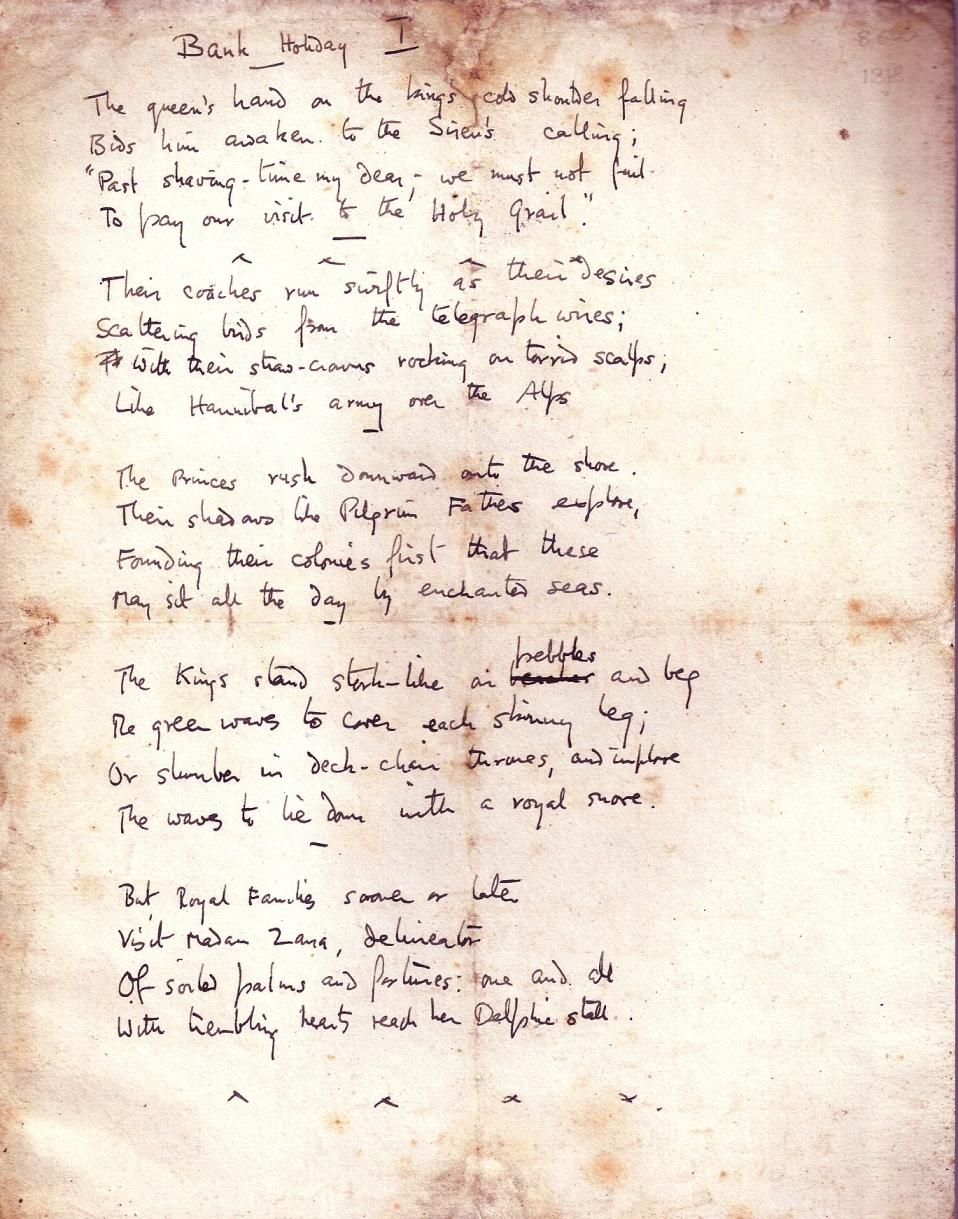 Bank Holiday I
The queen's hand on the king's cold shoulder falling
Bids him awaken to the Siren's calling;
"Past shaving-time my dear,- we must not fail
To pay our visit to the Holy Grail."
Their coaches run swiftly as their desires
Scattering birds from the telegraph wires;
With their straw-crowns rocking on torrid scalps,
Like Hannibal's army over the Alps
The Princes rush downward onto the shore.
Their shadows like Pilgrim Fathers explore,
Founding their colonies first that these
May sit all the day by enchanted seas.
pebbles
The Kings stand stork-like on beaches and beg
The green waves to cover each skinny leg;
Or slumber in deck-chair thrones, and implore
The waves to lie down with a royal snore.
But Royal Families sooner or later
Visit Madam Zana, delineator
Of soiled palms and fortunes: one and all
With trembling hearts reach her Delphic stall.